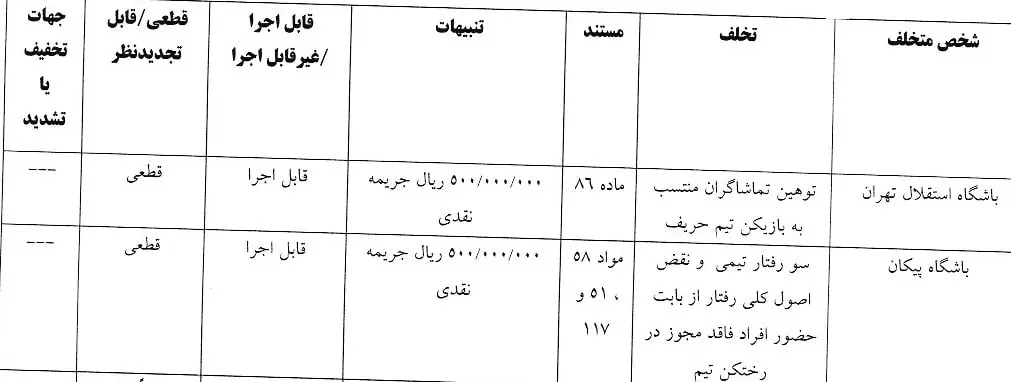 شخص متخلف
تخلف
مستند
تنبیهات
قابل اجرا
/غیرقابل اجرا
قطعی/قابل
تجدیدنظر
جهات
تخفیف
یا
تشدید
باشگاه استقلال تهران
توهین تماشاگران منتسب
به بازیکن تیم حریف
ماده ۸۶
۵۰۰/۰۰۰/۰۰۰ ریال جریمه
نقدی
قابل اجرا
قطعی
---
باشگاه پیکان
سو رفتار تیمی و نقض
اصول کلی رفتار از بابت
حضور افراد فاقد مجوز در
رختکن تیم
مواد ۵۸
، ۵۱ و
۱۱۷
۵۰۰/۰۰۰/۰۰۰ ریال جریمه
نقدی
قابل اجرا
قطعی
---